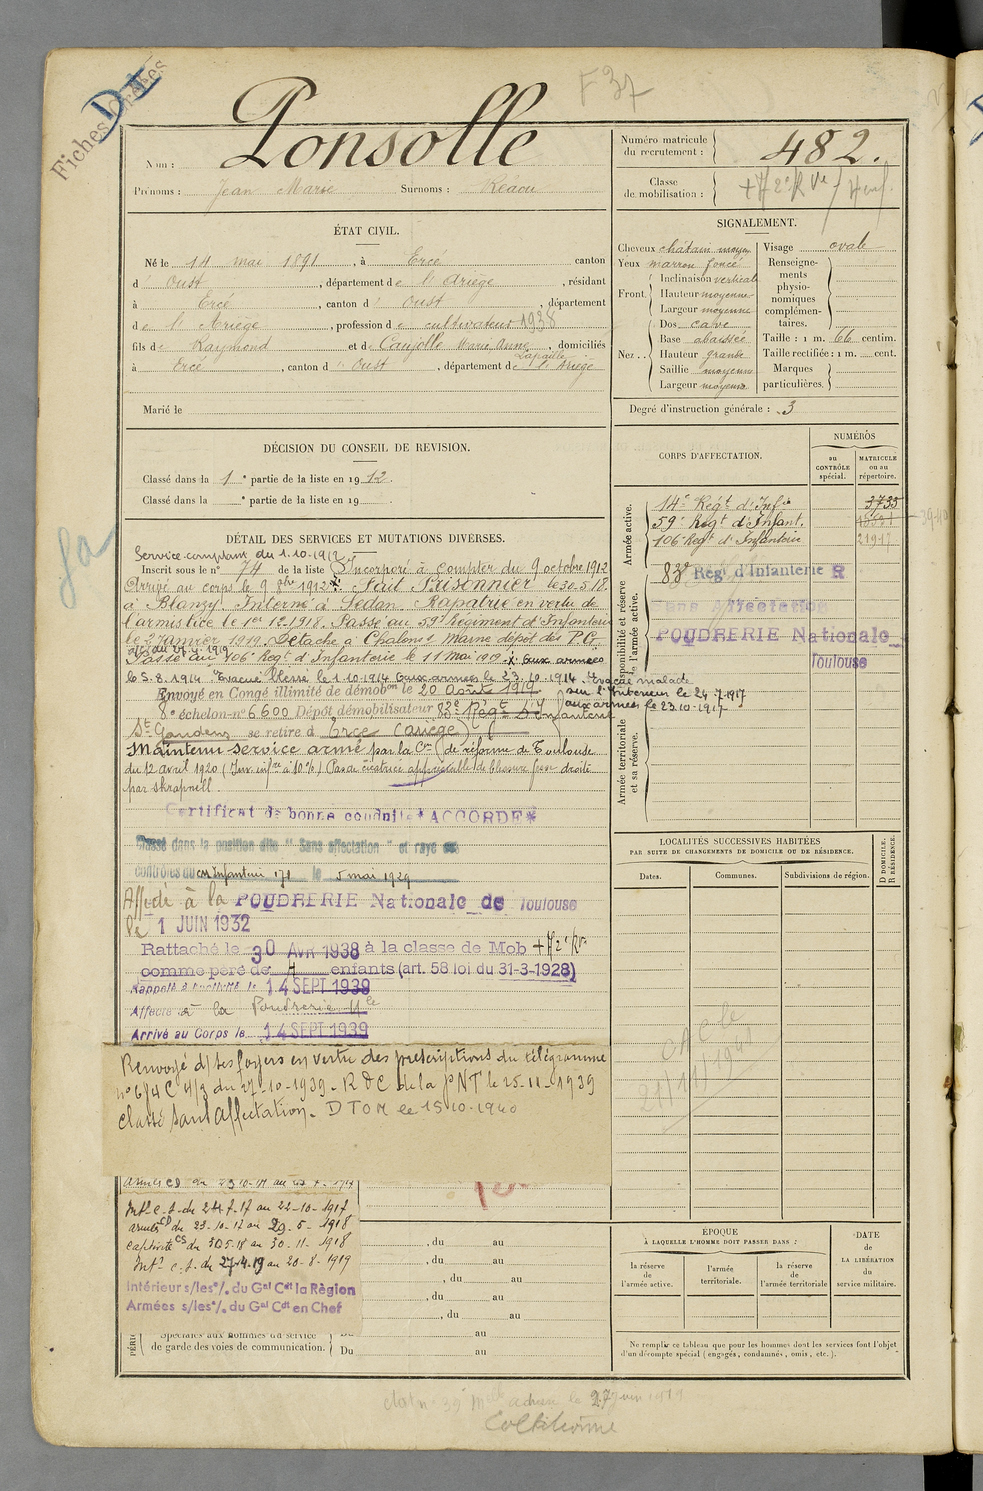 Fiches
F 37
Nom : Ponsolle
Prénoms : Jean Marie Surnoms : Réaou
Numéro matricule du recrutement : 482.
Classe de mobilisation :
ÉTAT CIVIL.
Né le 14 mai 1891, à Ercé canton
d' Oust, département de l'Ariège, résidant
à Ercé, canton d' Oust, département
de l'Ariège, profession de cultivateur 1938
fils de Raymond et de Caujolle Marie Anne, domiciliés
à Ercé, canton d' Oust, département de l'Ariège
Marié le
SIGNALEMENT.
Cheveux châtain moyen
Yeux marron foncé
Front. Inclinaison verticale
Hauteur moyenne
Largeur moyenne
Nez... Dos cave
Base abaissée
Hauteur grande
Saillie moyenne
Largeur moyenne
Visage ovale
Renseignements physionomiques complémentaires.
Taille : 1 m. 66 centim.
Taille rectifiée : 1 m. cent.
Marques particulières.
Degré d'instruction générale : 3
DÉCISION DU CONSEIL DE REVISION.
Classé dans la 1e partie de la liste en 1912.
Classé dans la e partie de la liste en 19 .
CORPS D'AFFECTATION.
NUMÉROS
au CONTRÔLE spécial.
MATRICULE ou au répertoire.
Armée active.
14e Régt d'Infie 3735
59e Régt d'Infant.
106e Régt d'Infanterie 21917
Disponibilité et réserve de l'armée active.
83e Régt d'Infanterie R
Sans Affectation
POUDRERIE Nationale
Toulouse
Armée territoriale et sa réserve.
DÉTAIL DES SERVICES ET MUTATIONS DIVERSES.
Service comptant du 1.10-1912
Inscrit sous le n° 74 de la liste Incorporé à compter du 9 octobre 1912
Arrivé au corps le 9 8bre 1912 x. Fait Prisonnier le 30.5.18
à Blanzy. Interné à Sedan. Rapatrié en vertu de
l'armistice le 1er 12.1918. Passé au 59e Régiment d'Infanterie
le 2 janvier 1919. Détaché à Chalons s/ Marne dépôt des P.G.
Passé au 106e Régt d'Infanterie le 11 mai 1919. x aux armées
le 5.8.1914. Evacué Blessé le 1.10.1914 Aux armées le 23.10.1914. Evacué malade
sur l'Intérieur le 24.7.1917
aux armées le 23.10.1917
Envoyé en Congé illimité de démobon le 20 Août 1919
8e échelon-n° 6600 Dépôt démobilisateur 83e Régt d'Infanterie
St Gaudens se retire à Ercé (Ariège)
Maintenu service armé par la Con de réforme de Toulouse
du 12 avril 1920 (Inv. infre à 10%) Pas de cicatrice appréciable de blessure droite
par shrapnell.
Certificat de bonne conduite *ACCORDÉ*
Classé dans la position dite "Sans affectation" et rayé des
contrôles du CM Infanterie 171 le 5 mai 1929
Affecté à la POUDRERIE Nationale de Toulouse
le 1 JUIN 1932
Rattaché le 30 AVR 1938 à la classe de Mob
comme père de 4 enfants (art. 58 loi du 31-3-1928)
Rappelé à l'activité le 14 SEPT 1939
Affecté à la Poudrerie Nle
Arrivé au Corps le 14 SEPT 1939
Renvoyé d/ ses foyers en vertu des prescriptions du télégramme
n° 6/4 C 4/3 du 27-10-1939. R D C de la PNT le 25-11-1939
classé sans affectation. DTOM le 15-10-1940
Intre c.s. du 24-7-17 au 22-10-1917
armées CD du 23-10-17 au 29-5-1918
captivité CS du 30.5-18 au 30-11-1918
Intr c.s. du 27.4.19 au 20-8-1919
Intérieur s/les o/. du Gal Cdt la Région
Armées s/les o/. du Gal Cdt en Chef
Spéciales aux hommes du service
de garde des voies de communication.
, du au
, du au
, du au
, du au
, du au
Du au
Du au
LOCALITÉS SUCCESSIVES HABITÉES
PAR SUITE DE CHANGEMENTS DE DOMICILE OU DE RÉSIDENCE.
Dates.
Communes.
Subdivisions de région.
D DOMICILE.
R RÉSIDENCE.
21/11/194
ÉPOQUE
À LAQUELLE L'HOMME DOIT PASSER DANS :
la réserve de l'armée active.
l'armée territoriale.
la réserve de l'armée territoriale
DATE de LA LIBÉRATION du service militaire.
Ne remplir ce tableau que pour les hommes dont les services font l'objet
d'un décompte spécial (engagés, condamnés, omis, etc.).